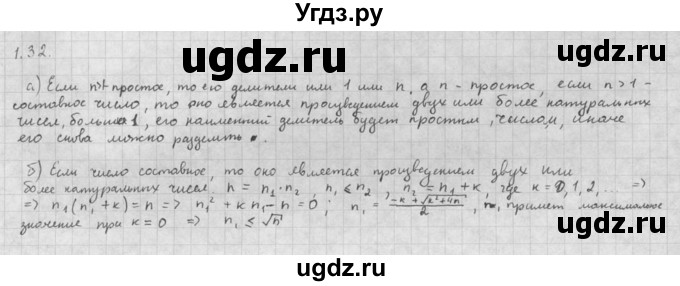 Угдз.ру
1.32.
ugdz.ru ugdz.ru
а) Если n>1 простое, то его делители или 1 или n, а n - простое, если n>1 -
составное число, то оно является произведением двух или более натуральных
чисел, больших 1, его наименший делитель будет простым числом, иначе
его снова можно разделить.
ugdz.ru
б) Если число составное, то оно является произведением двух или
более натуральных чисел. n = n₁·n₂, n₁ ≤ n₂, n₂ = n₁ + к, где к = 0, 1, 2, ... ⇒
⇒ n₁(n₁ + к) = n ⇒ n₁² + кn₁ - n = 0; n₁ = (-к + √(к² + 4n))/2, n₁ примет максимальное
значение при к = 0 ⇒ n₁ ≤ √n
ugdz.ru ugdz.ru
ugdz.ru